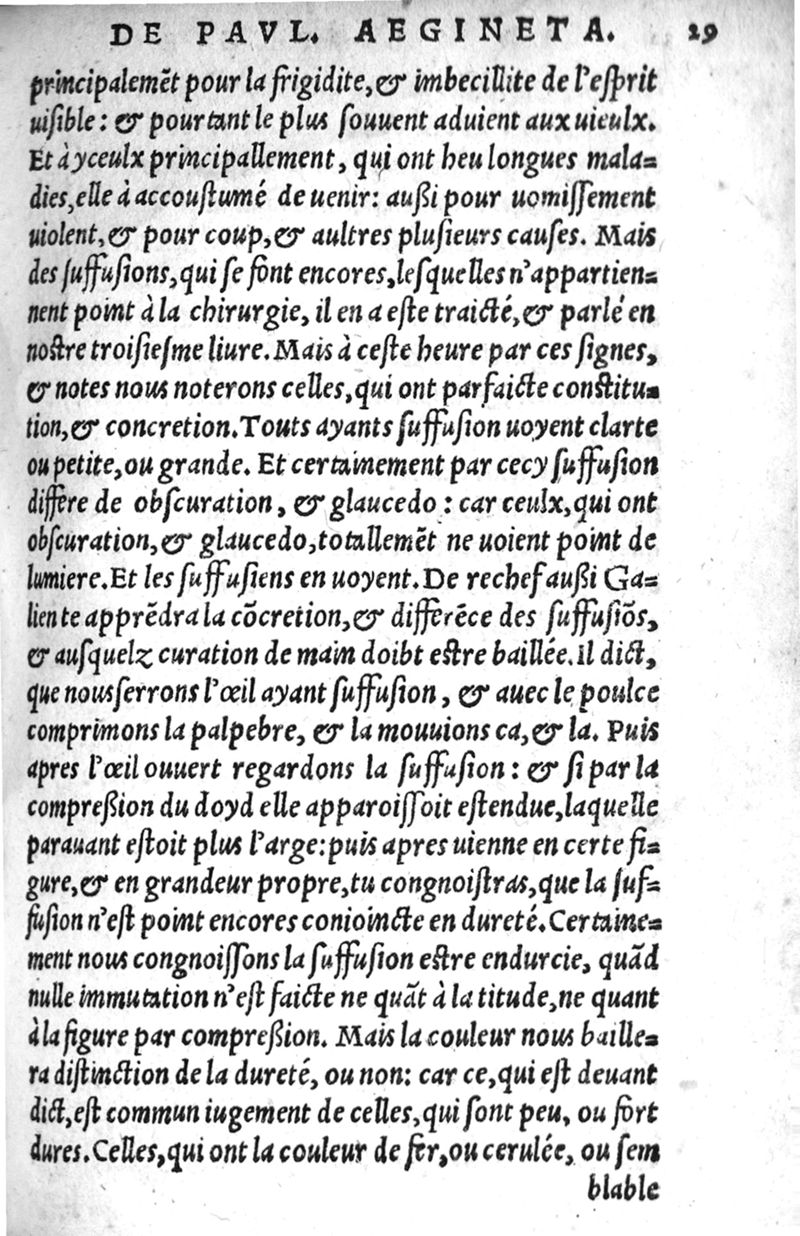 DE PAVL. AEGINETA. 29
principalemẽt pour la frigidite, & imbecillite de l'eſprit
uiſible : & pourtant le plus ſouuent aduient aux uieulx.
Et à yceulx principallement, qui ont heu longues mala=
dies, elle à accouſtumé de uenir: außi pour uomiſſement
uiolent, & pour coup, & aultres pluſieurs cauſes. Mais
des ſuffuſions, qui ſe font encores, leſquelles n'appartien=
nent point à la chirurgie, il en a eſte traicté, & parlé en
noſtre troiſieſme liure. Mais à ceſte heure par ces ſignes,
& notes nous noterons celles, qui ont parfaicte conſtitu=
tion, & concretion. Touts ayants ſuffuſion uoyent clarte
ou petite, ou grande. Et certainement par cecy ſuffuſion
differe de obſcuration, & glaucedo : car ceulx, qui ont
obſcuration, & glaucedo, totallemẽt ne uoient point de
lumiere. Et les ſuffuſiens en uoyent. De rechef außi Ga=
lien te apprẽdra la cõcretion, & differẽce des ſuffuſiõs,
& auſquelz curation de main doibt eſtre baillée. il dict,
que nous ſerrons l'œil ayant ſuffuſion, & auec le poulce
comprimons la palpebre, & la mouuions ca, & la. Puis
apres l'œil ouuert regardons la ſuffuſion : & ſi par la
compreßion du doyd elle apparoiſſoit eſtendue, laquelle
parauant eſtoit plus l'arge: puis apres uienne en certe fi=
gure, & en grandeur propre, tu congnoiſtras, que la ſuf=
fuſion n'eſt point encores conioincte en dureté. Certaine=
ment nous congnoiſſons la ſuffuſion eſtre endurcie, quãd
nulle immutation n'eſt faicte ne quãt à la titude, ne quant
à la figure par compreßion. Mais la couleur nous baille=
ra diſtinction de la dureté, ou non: car ce, qui eſt deuant
dict, eſt commun iugement de celles, qui ſont peu, ou fort
dures. Celles, qui ont la couleur de fer, ou cerulée, ou ſem
blable